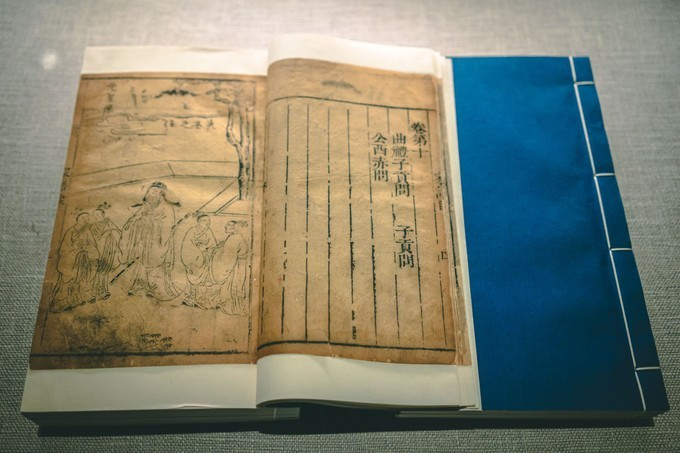 卷第十
曲禮子貢問　子貢問
公西赤問